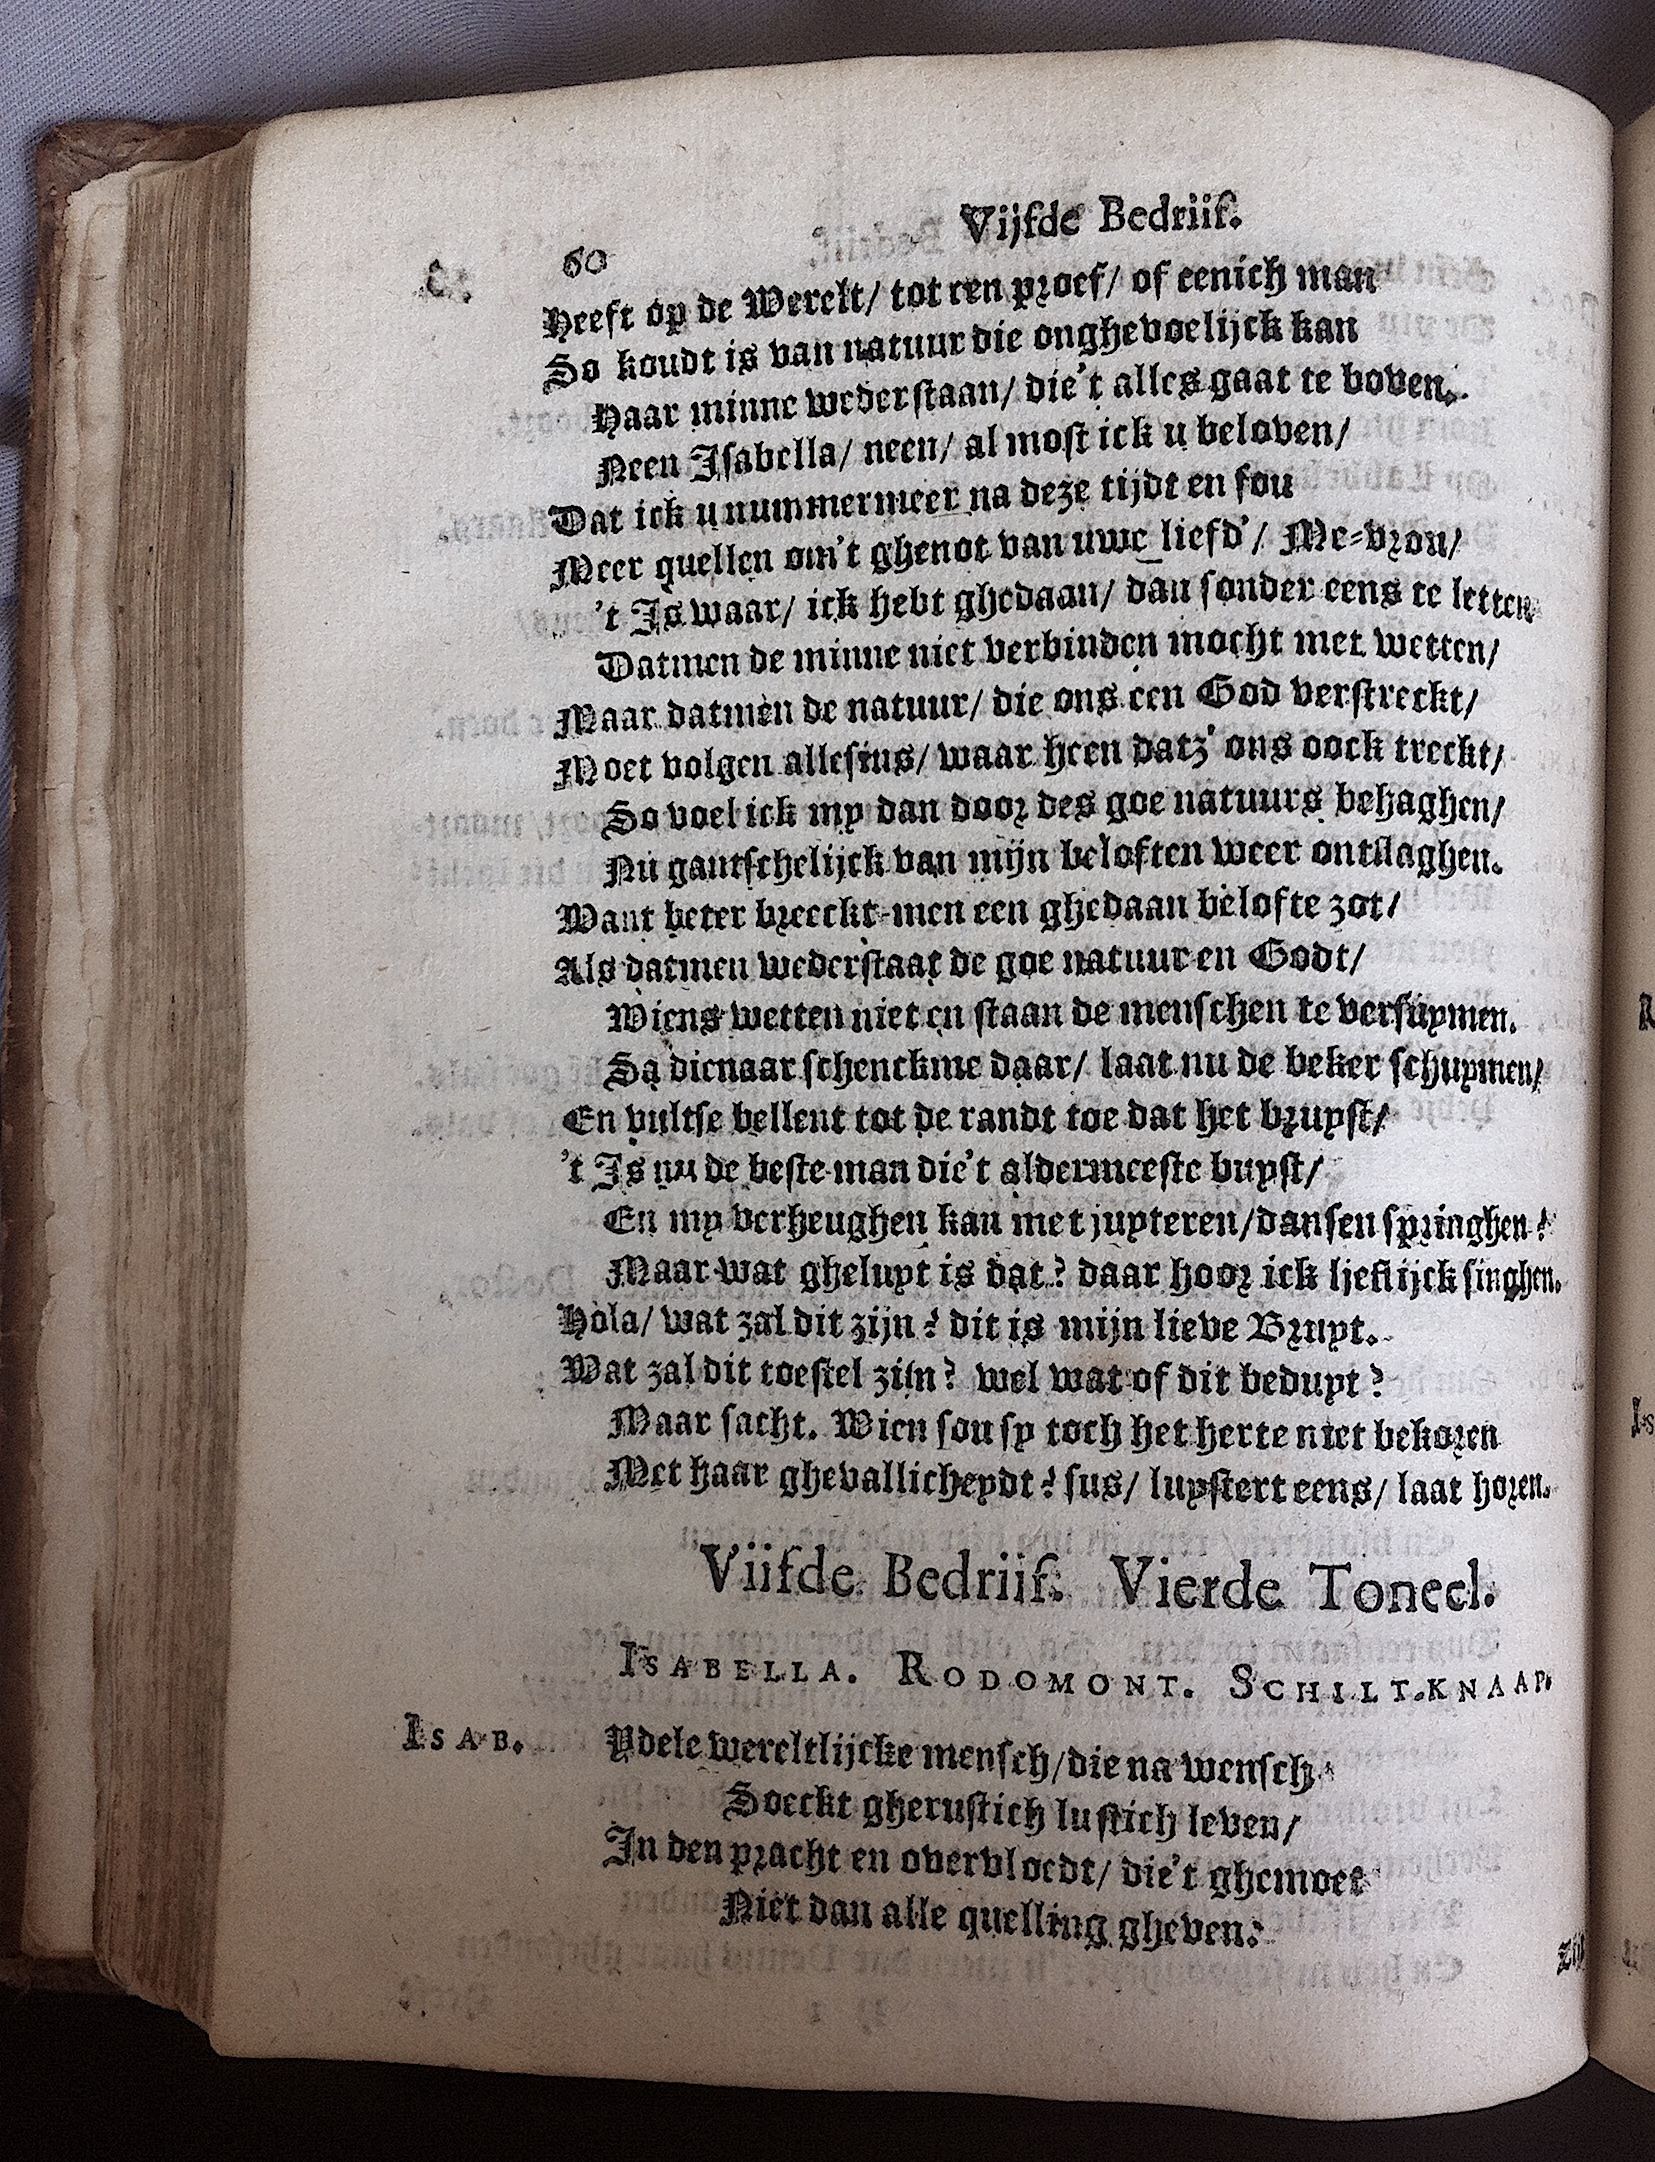 Vijfde Bedriif.
60
Heeft op de Werelt/ tot een proef/ of eenich man
So koudt is van natuur die onghevoelijck kan
Haar minne wederstaan/ die't alles gaat te boven.
Neen Isabella/ neen/ al most ick u beloven/
Dat ick u nummermeer na deze tijdt en sou
Meer quellen om't ghenot van uwe liefd'/ Me-vrou/
't Is waar/ ick hebt ghedaan/ dan sonder eens te letten
Datmen de minne niet verbinden mocht met wetten/
Maar datmen de natuur/ die ons een God verstreckt/
Moet volgen allesins/ waar heen datz' ons oock treckt/
So voel ick my dan door des goe natuurs behaghen/
Nu gantschelijck van mijn beloften weer ontslaghen.
Want beter breeckt-men een ghedaan belofte zot/
Als datmen wederstaat de goe natuur en Godt/
Wiens wetten niet en staan de menschen te versuymen.
Sa dienaar schenckme daar/ laat nu de beker schuymen/
En vultse vellent tot de randt toe dat het bruyst/
't Is nu de beste man die't aldermeeste buyst/
En my verheughen kan met juyteren/dansen springhen!
Maar wat gheluyt is dat? daar hoor ick lieflijck singhen.
Hola/ wat zal dit zijn? dit is mijn lieve Bruyt.
Wat zal dit toestel zijn? wel wat of dit beduyt?
Maar sacht. Wien sou sy toch het herte niet bekoren
Met haar ghevallicheydt? sus/ luystert eens/ laat horen.
Viifde Bedriif. Vierde Toneel.
ISABELLA. RODOMONT. SCHILT-KNAAP.
ISAB. Ydele wereltlijcke mensch/die na wensch
Soeckt gherustich lustich leven/
In den pracht en overvloedt/ die't ghemoet
Niet dan alle quelling gheven: